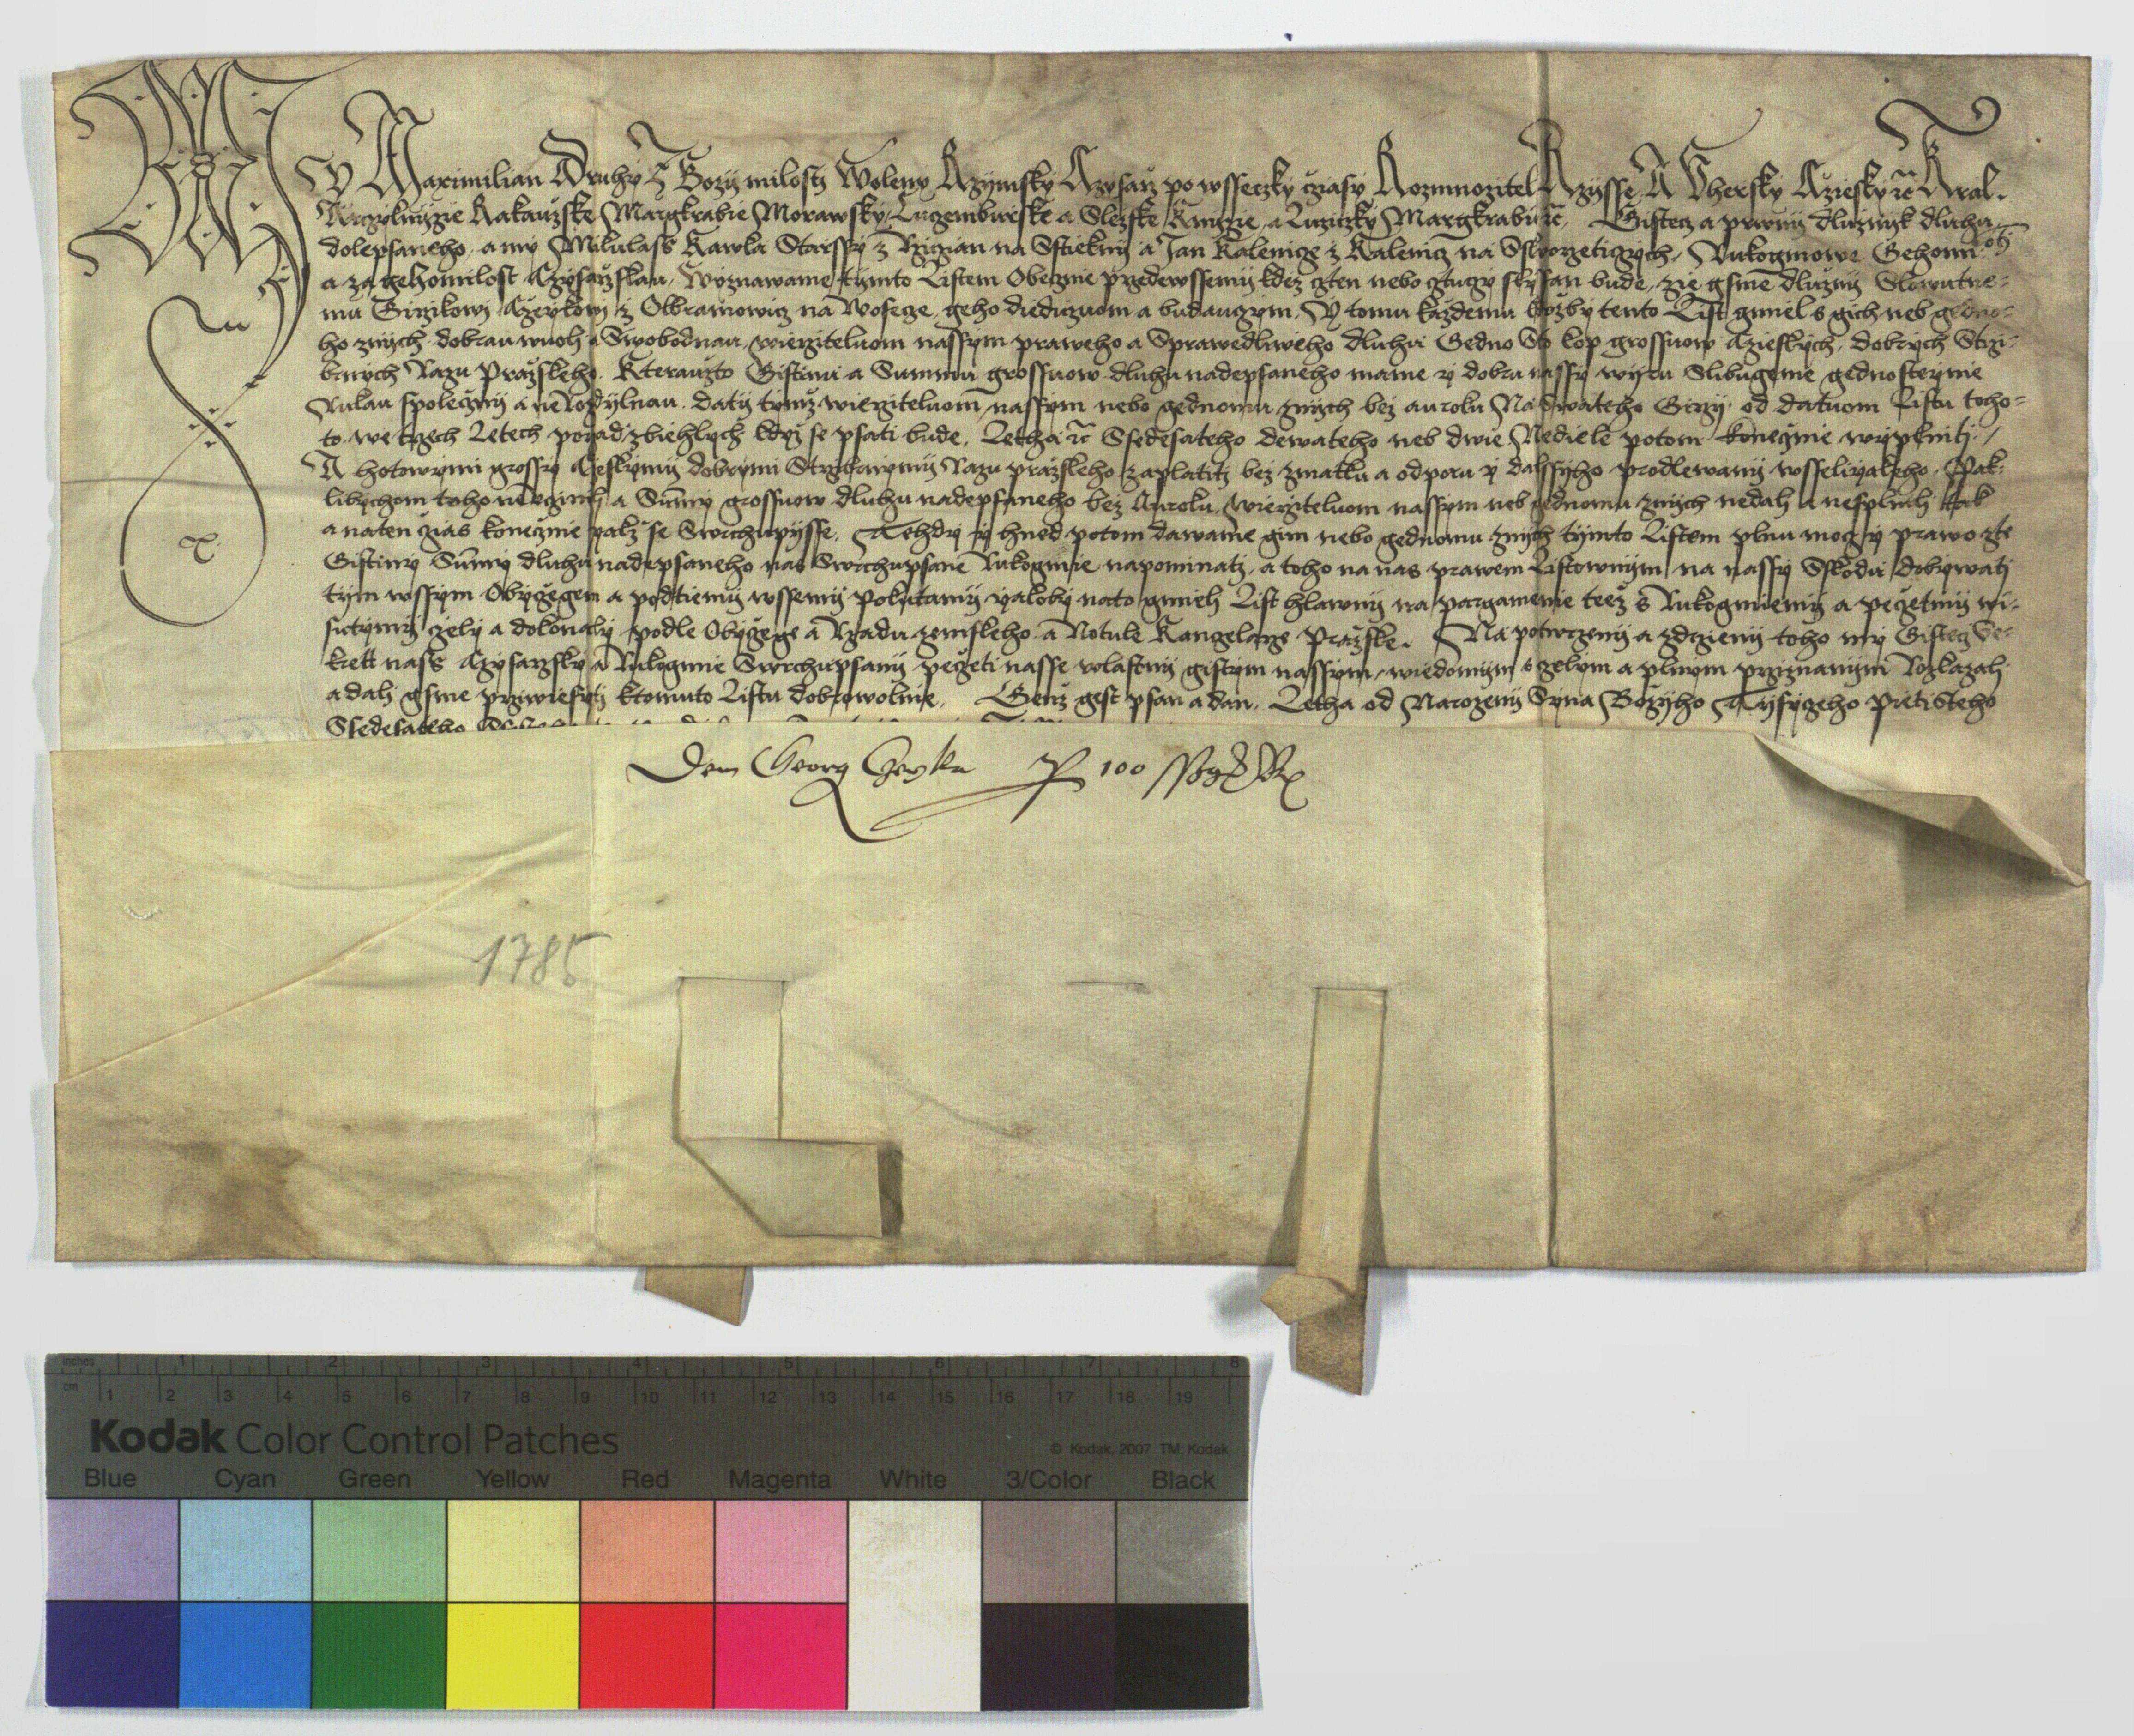 My Maximilian Druhy Z Bozy milosti Woleny Rzymsky Czysarz po wsseczky czasy Rozmnozitel Rzysse A Vhersky Cziesky ꝛc Kral.
Arczyknyzie Rakauzske Margkrabie Morawsky Luczemburske a Slezske Knyzie a Luziczky Margkrabie ꝛc. Gistecz a prwny dluznyk dluhu
dolepsaneho, a my Mikulass Karlia Starssy z Rziczian na Sstiekny a Jan Kalenicze z Kalenicz na Sskworzeticzych, Rukogmowe Gehomti
a za gehomilost Czysarzskau, Wyznawame tymto Listem Obeczne przedewssemy kdez cten nebo cztuczy slyssan bude, zie gsme dluzny Slowutne-
mu Girzikowi Czeykowi z Olbramowicz na Wosecze, geho diediczuom a buduczym, Y tomu kazdemu ktozby tento List gmiel s gich neb gedno-
ho znych dobrau wuoli a Swobodnau, wierzyteluom nassym praweho a Sprawedliweho dluhu Gedno Sto kop grossuow Czieskych, dobrych Strzi-
brnych Razu Prazskeho. Kterauzto Gistinu a Summu grossuow dluhu nadepsaneho mame y dobru nassy wyru Slibugeme gednosteynie
Rukau spoleczny a nerozdylnau, daty tymz wierziteluom nassym nebo gednomu znych bez auroku Na Swateho Girzy od datuom Listu toho-
to we trzech Letech porzad zbiehlych kdyz se psati bude, Letha ꝛc Ssedesateho dewateho neb dwie Nediele potom koneznie wyplniti.
A hotowymi grossy Cieskymy dobrymi Strzibrnymy Razu prazskeho zaplatiti bez zmatku a odporu y dalssyho prodlewany wsselikyakeho, Pak-
libychom toho neuczinili, a Summy grossuow dluhu nadepsaneho bez Auroku, wierzyteluom nassym neb gednomu znych nedali a nesplnili tak
a naten czas konecznie yakz se Swrchupysse, Tehdy y hned potom dawame gim nebo gednomu znych tymto Listem plnu mocz y prawo zte
Gistiny Summy dluhu nadepsaneho nas Swrchupsane Rukogmie napominati, a toho na nas prawem Listownym na nassy Sskodu dobywati
tym wssym Obyczegem a podtiemy wssemy pokutamy yakoby nato gmieli List hlawny na pargamenie teez s Rukogmiemy a peczetmy wi-
sutymy czely a dokonaly podle Obyczege a Rzadu zemskeho a Notule Kanczelarze Prazske. Na potwrzeny a zdrzeny toho my Gistecz Se-
krett nass Czysarzsky a Rukogmie Swrchupsany peczeti nasse wlastny gistym nassym wiedomym s czelym a plnym przyznanym Rozkazali
a dali gsme przywiesyti ktomuto Listu dobrowolnie. Genz gest psan a dan. Letha od Narozeny Syna Bozyho Tysyczeho Pietisteho
Ssedesateho
Den Georg Cheyka P 100
1785
Kodak Color Control Patches
© Kodak, 2007 TM: Kodak
inches 1 2 3 4 5 6 7 8
cm 1 2 3 4 5 6 7 8 9 10 11 12 13 14 15 16 17 18 19
Blue Cyan Green Yellow Red Magenta White 3/Color Black